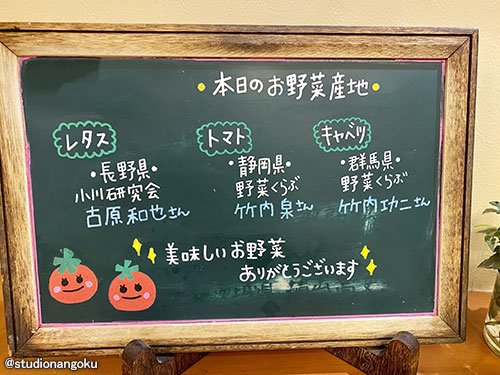 ・本日のお野菜産地・
レタス
・長野県・
小川研究会
古原和也さん
トマト
・静岡県・
野菜くらぶ
竹内泉さん
キャベツ
・群馬県・
野菜くらぶ
竹内功二さん
美味しいお野菜
ありがとうございます
@studionangoku